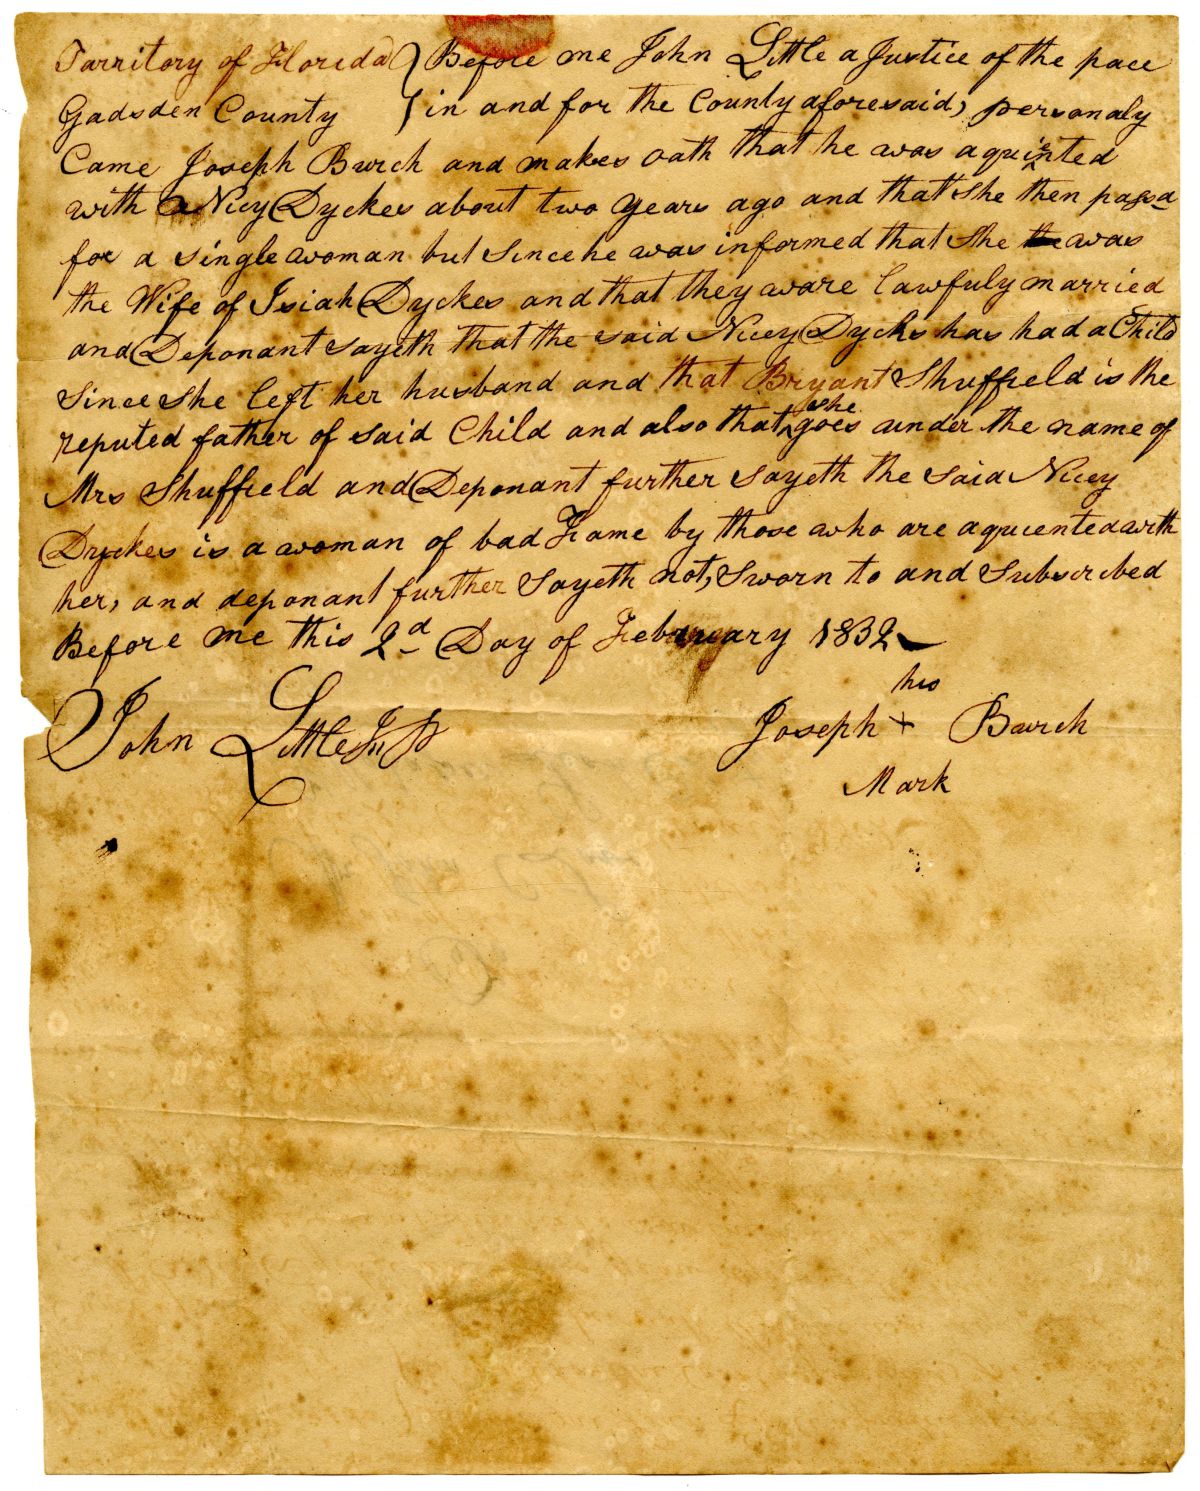 Tarritory of Florida } Before me John Little a Justice of the pace
Gadsden County } in and for the County aforesaid, personaly
Came Joseph Burch and makes oath that he was aquinted
with a Nicy Dyckes about two years ago and that she then passd
for a single woman but since he was informed that she the was
the Wife of Isiah Dyckes and that they ware lawfuly married
and Deponant sayeth that the said Nicey Dycks has had a Child
Since she left her husband and that Bryant Shuffield is the
reputed father of said Child and also that she goes under the name of
Mrs Shuffield and Deponant further sayeth the said Nicey
Dyckes is a woman of bad Fame by those who are aquientea with
her, and deponant further sayeth not, Sworn to and Subscribed
Before me this 2d Day of February 1832
his
John Little JP Joseph + Burch
Mark